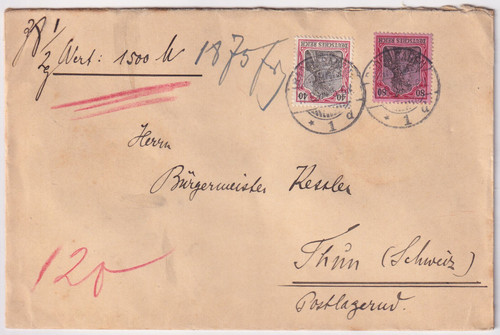 Wert: 1500 M
1875 fr
DEUTSCHES REICH
40 40
DEUTSCHES REICH
80 80
* 1 d
* 1 d
Herrn
Bürgermeister Kessler
Thun (Schweiz)
Postlagernd.
120